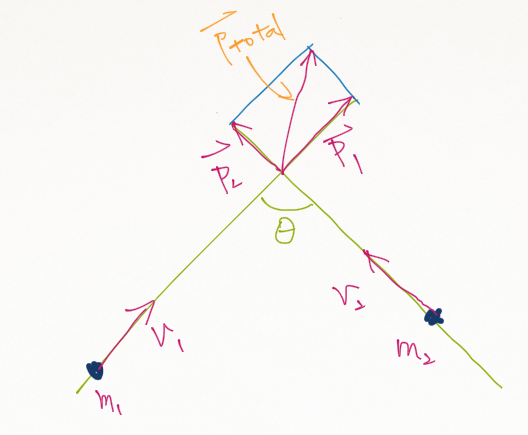 P⃗total
P⃗₂
P⃗₁
θ
V₁
V₂
m₁
m₂